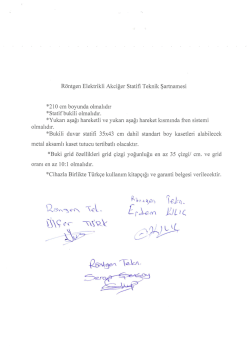 Röntgen Elektrikli Akciğer Statifi Teknik Şartnamesi
*210 cm boyunda olmalıdır
*Statif bukili olmalıdır.
*Yukarı aşağı hareketli ve yukarı aşağı hareket kısmında fren sistemi
olmalıdır.
*Bukili duvar statifi 35x43 cm dahil standart boy kasetleri alabilecek
metal aksamlı kaset tutucu tertibatlı olacaktır.
*Buki grid özellikleri grid çizgi yoğunluğu en az 35 çizgi/ cm. ve grid
oranı en az 10:1 olmalıdır.
*Cihazla Birlikte Türkçe kullanım kitapçığı ve garanti belgesi verilecektir.
Röntgen Tek.
Röntgen Tekn.
Erdem KILIÇ
Röntgen Tekn.